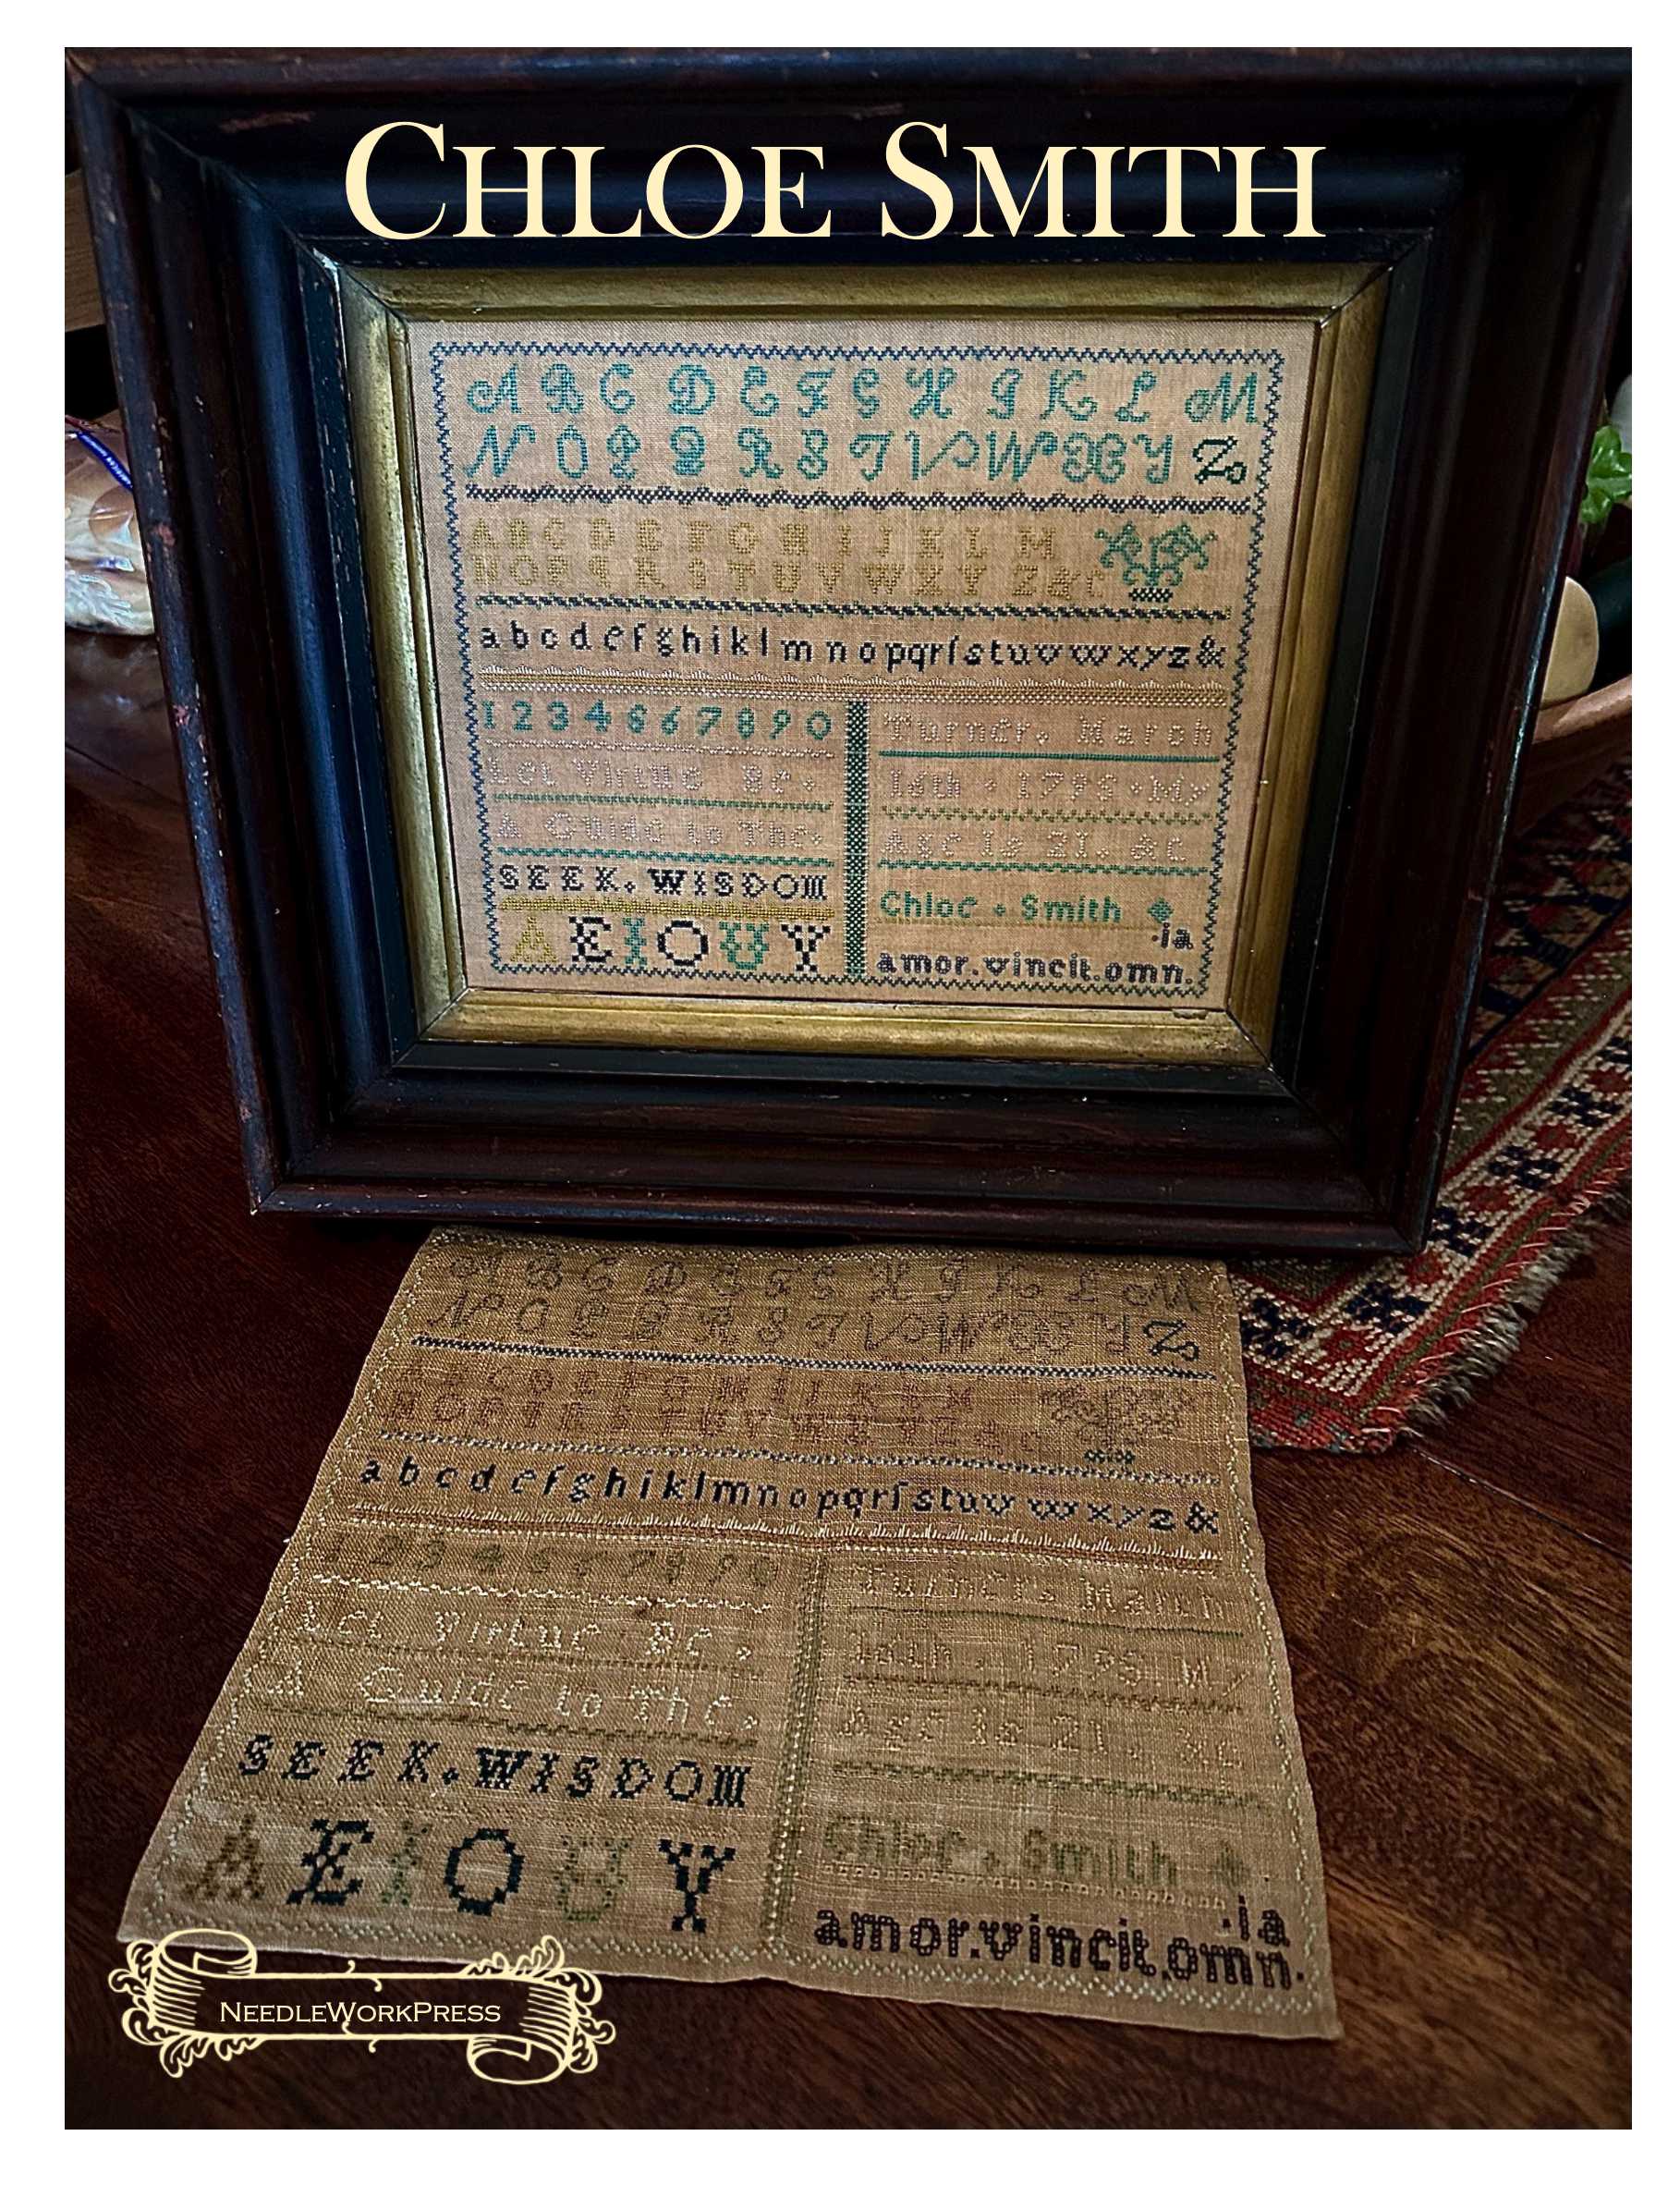 CHLOE SMITH
A B C D E F G H I K L M
N O P Q R S T V W X Y Z
A B C D E F G H I J K L M
N O P Q R S T U V W X Y Z & C
a b c d e f g h i k l m n o p q r ſ s t u v w x y z &
1 2 3 4 5 6 7 8 9 0
Let Virtue Be.
A Guide to The.
SEEK. WISDOM
A E I O U Y
Turner. March
16th. 1793. My
Age Is 21. &C
Chloe. Smith
.ia
amor.vincit.omn.
A B C D E F G H I K L M
N O P Q R S T V W X Y Z
A B C D E F G H I J K L M
N O P Q R S T U V W X Y Z & C
a b c d e f g h i k l m n o p q r ſ s t u v w x y z &
1 2 3 4 5 6 7 8 9 0
Let Virtue Be.
A Guide to The.
SEEK. WISDOM
A E I O U Y
Turner. March
16th. My
Age Is 21. &C
Chloe. Smith
.ia
amor.vincit.omn.
NEEDLEWORKPRESS